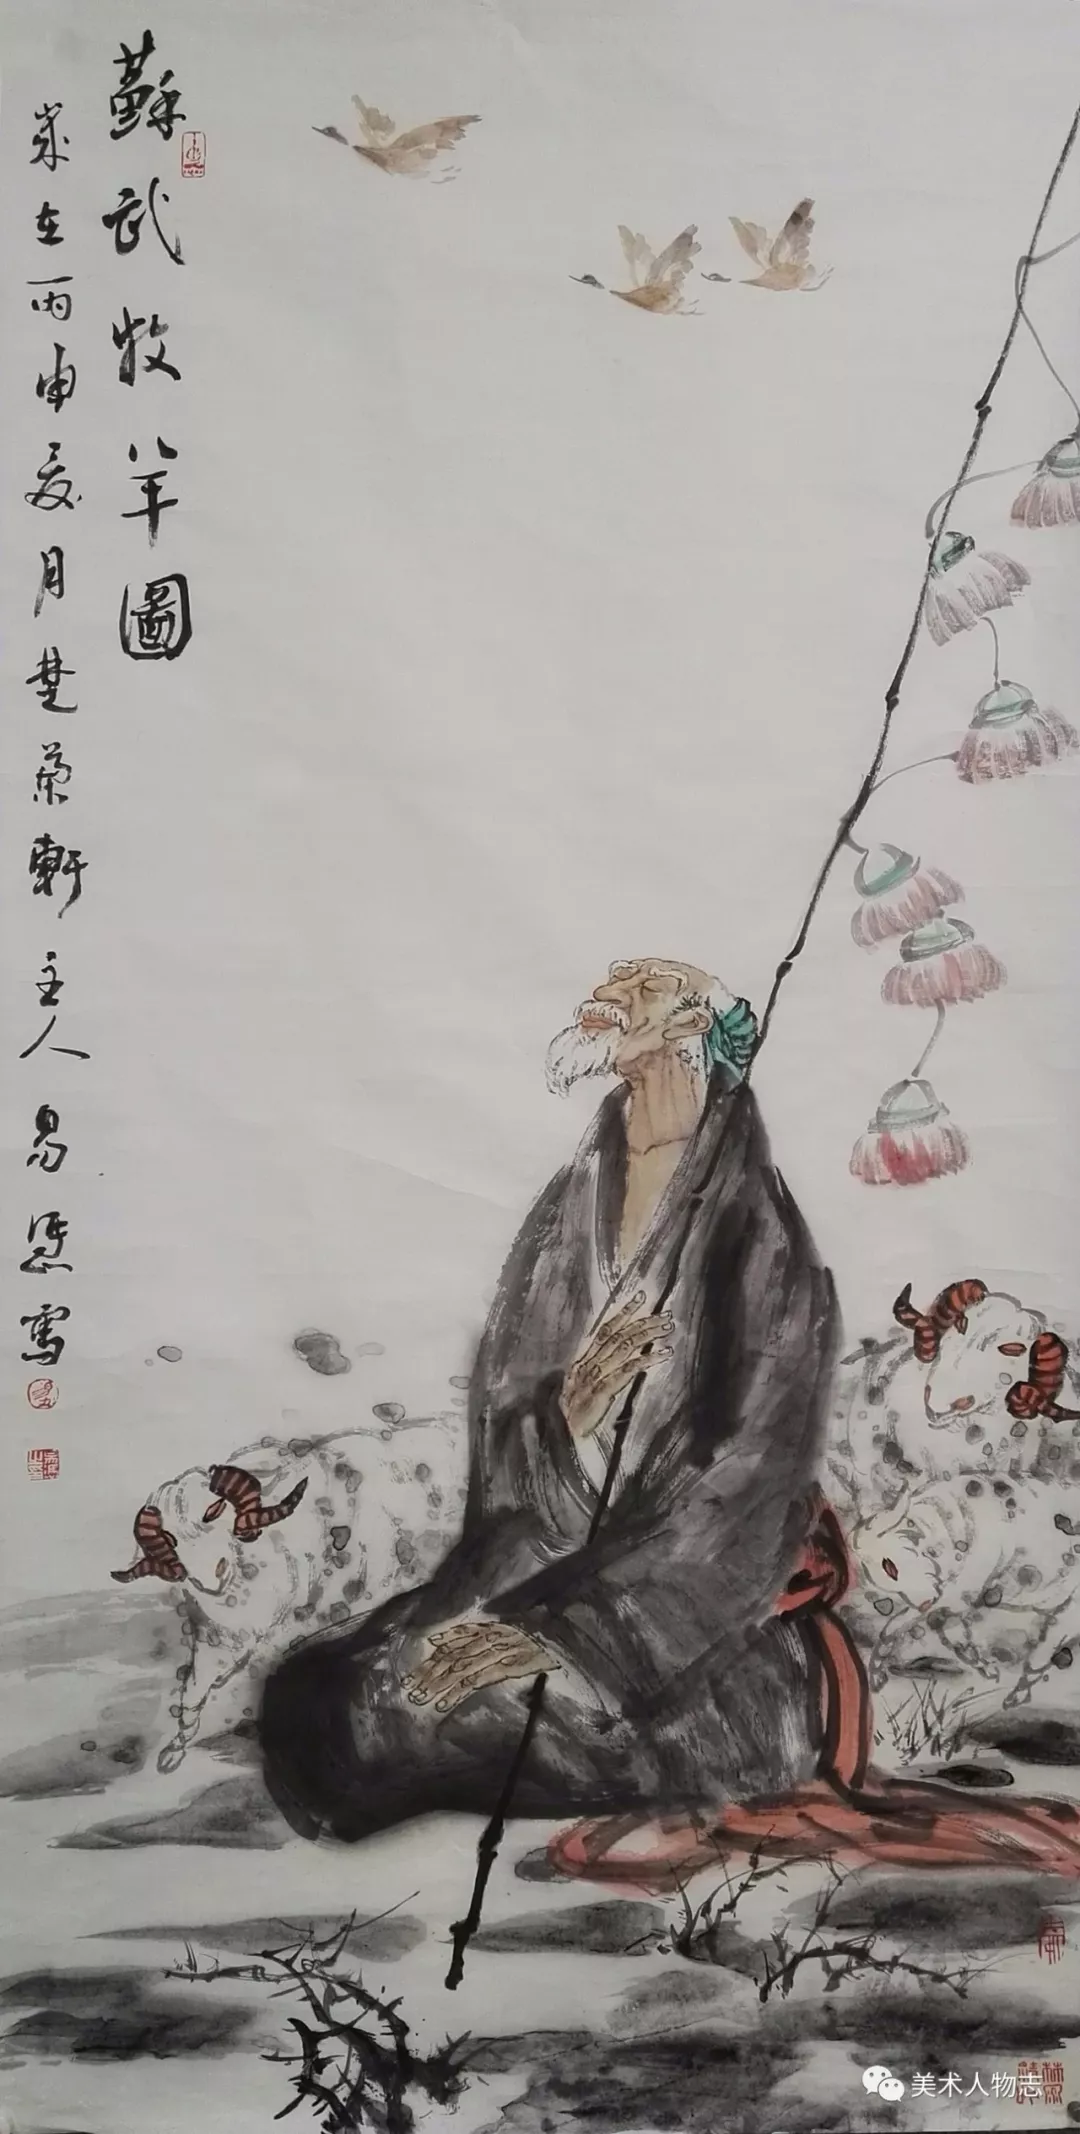 蘇武牧羊圖
歲在丙申夏月楚蘭軒主人易憑寫
美术人物志